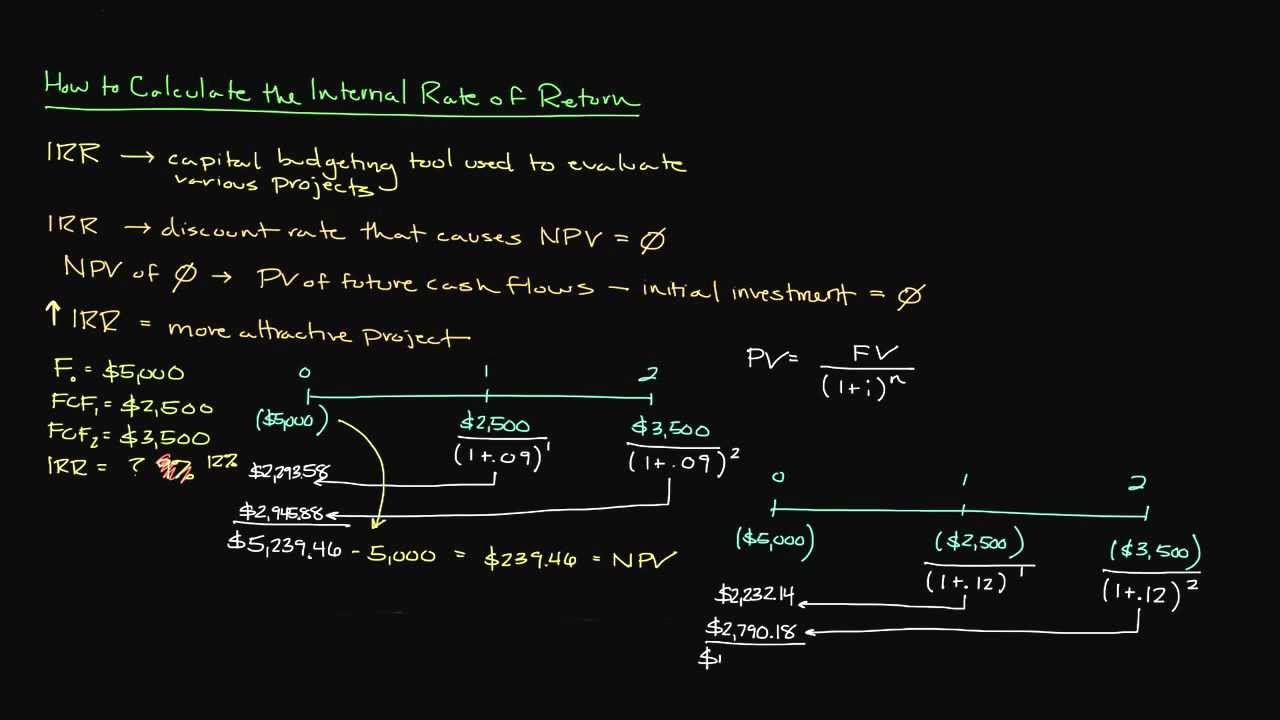 How to Calculate the Internal Rate of Return
IRR → capital budgeting tool used to evaluate
various projects
IRR → discount rate that causes NPV = Ø
NPV of Ø → PV of future cash flows – initial investment = Ø
↑ IRR = more attractive project
F₀ = $5,000
FCF₁ = $2,500
FCF₂ = $3,500
IRR = ? 12%
0 1 2
($5,000) $2,500 $3,500
(1+.09)¹ (1+.09)²
$2,293.58
$2,945.88
$5,239.46 - 5,000 = $239.46 = NPV
PV = FV
(1+i)ⁿ
0 1 2
($5,000) ($2,500) ($3,500)
(1+.12)¹ (1+.12)²
$2,232.14
$2,790.18
$